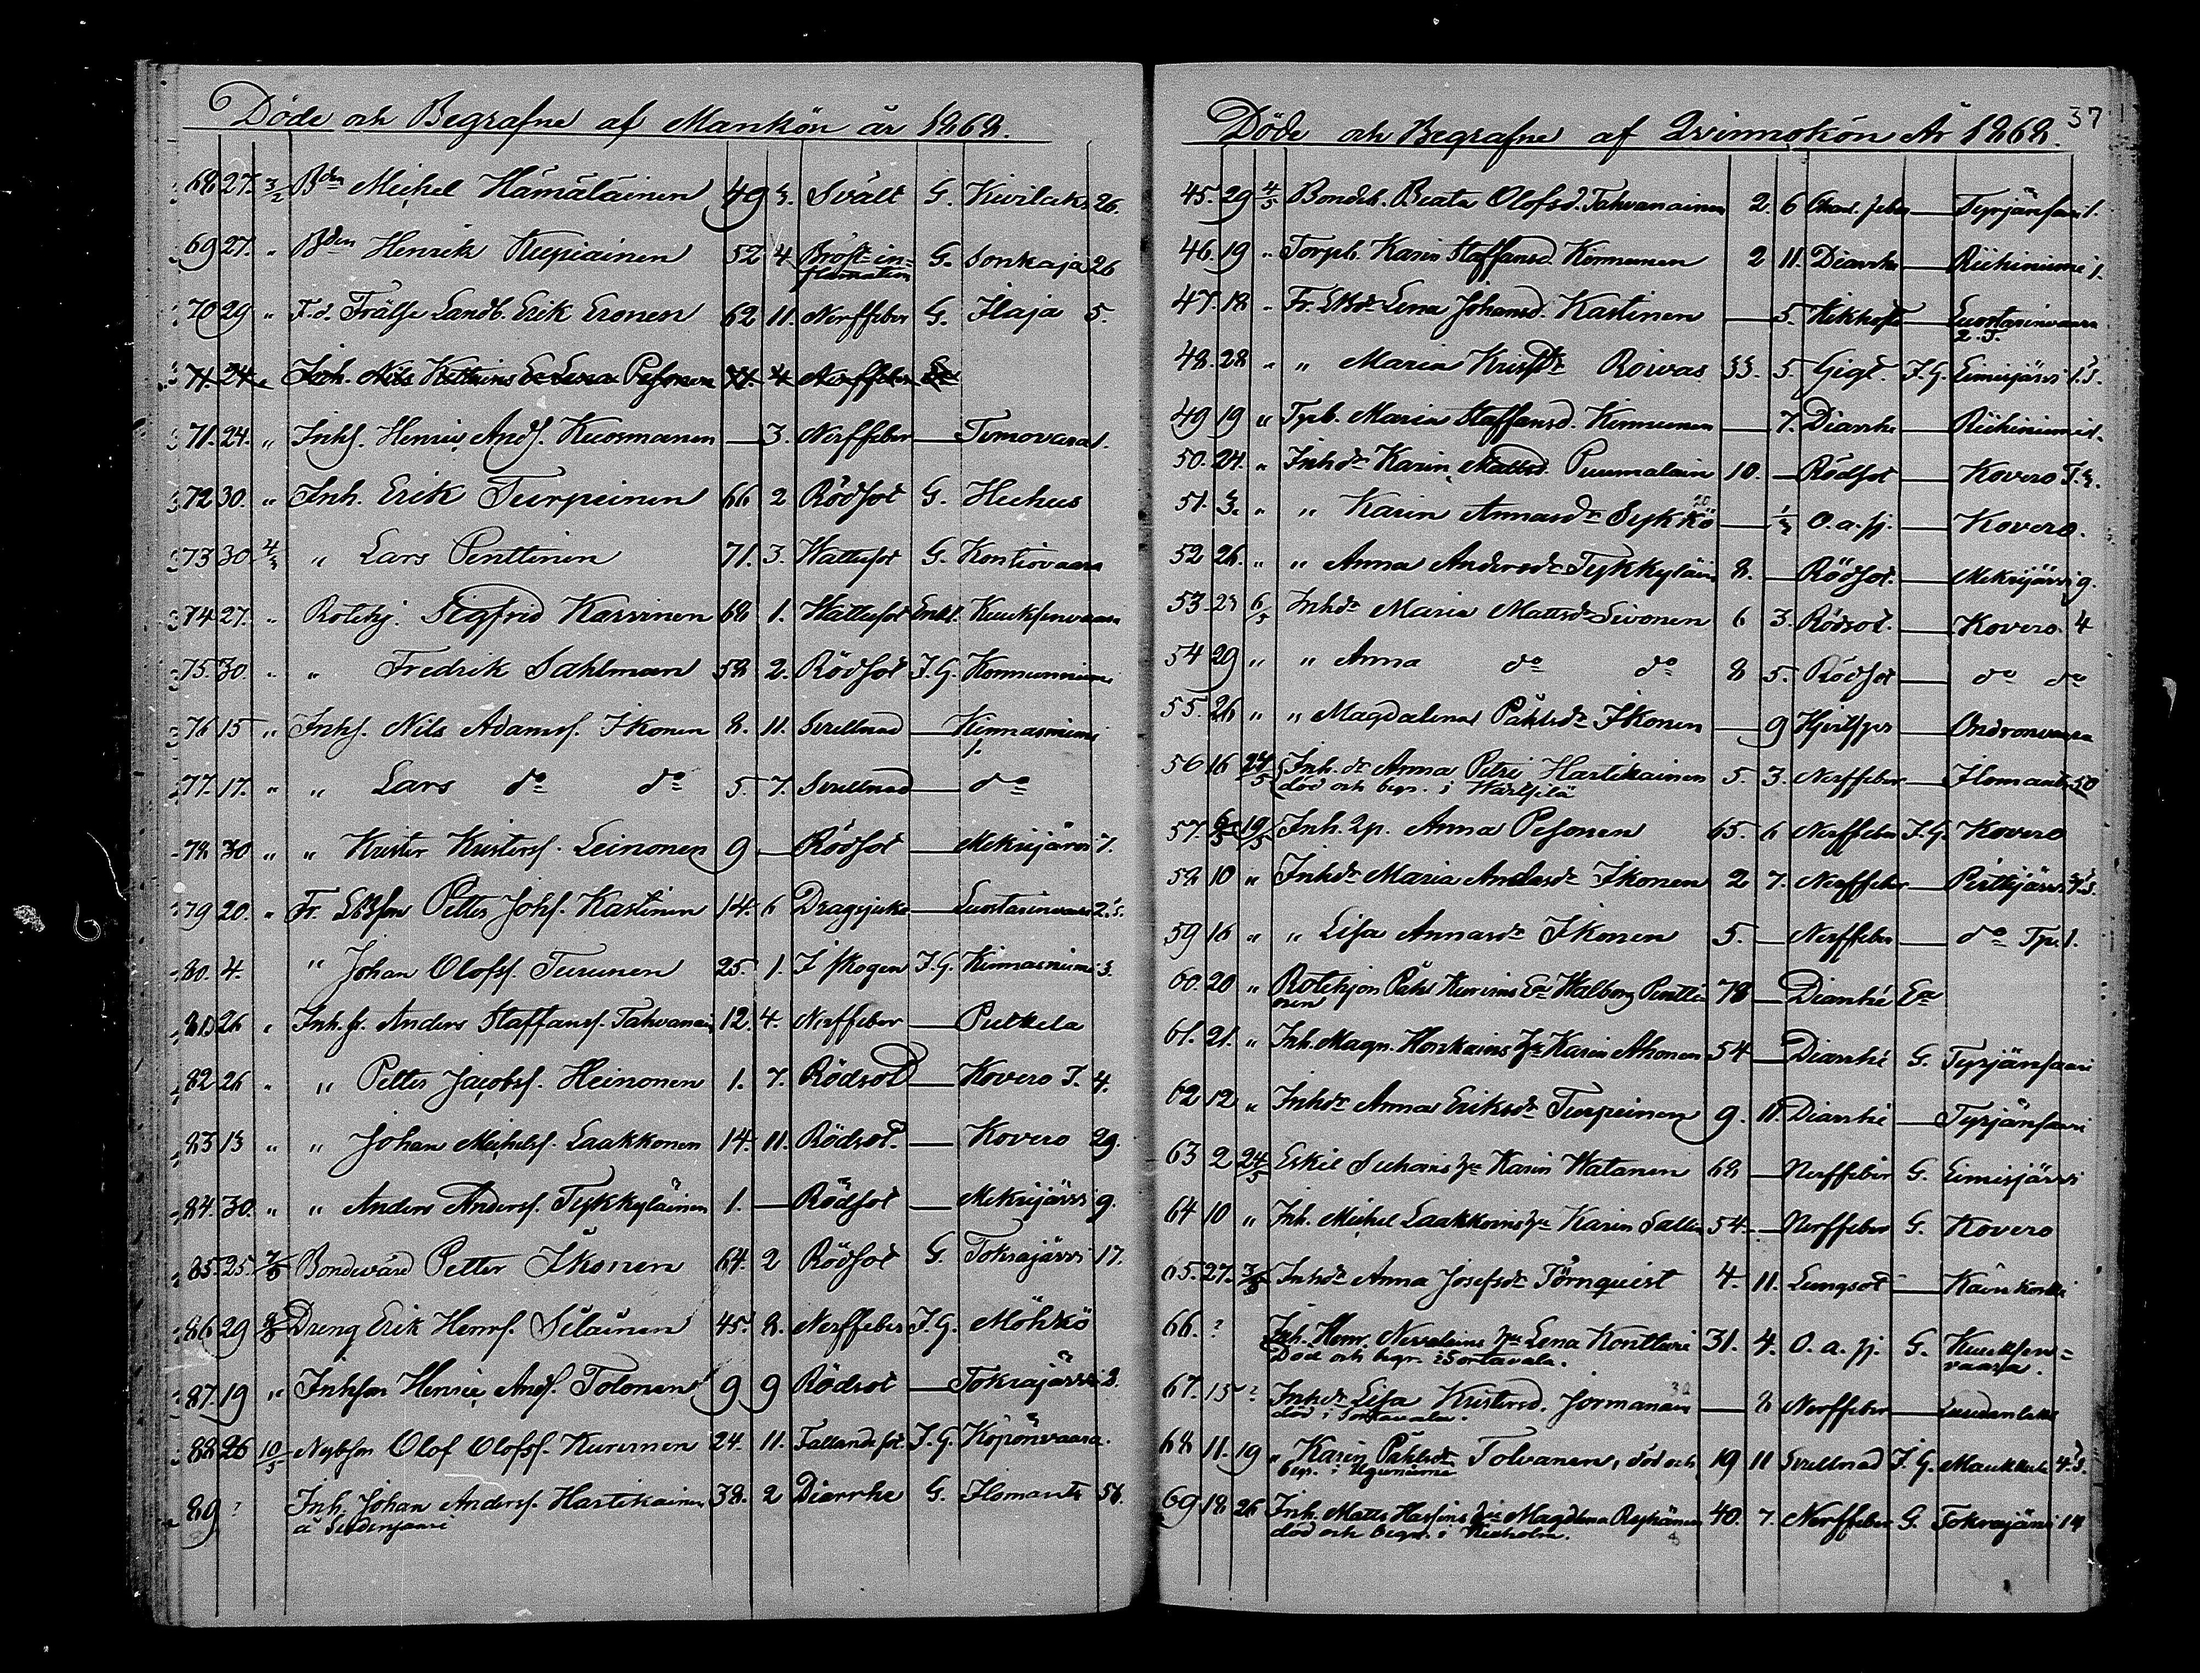 Döde och Begrafne af Mankön år 1868.
68 27. 3/2 Bden Michel Hämäläinen 49 3. Svält G. Kivilaks 26.
69 27. " Bden Henrik Kupiainen 52 4 Bröst in=
flamation G. Sonkaja 26
70 29 " F.d. Frälse Landb. Erik Eronen 62 11. Nerffeber G. Ilaja 5.
71. 24. " Inh. Nils Enka Lena Pesonen 4 Nerffeber
71. 24. " Inhs. Henric Ands. Kuosmanen — 3. Nerffeber — Temovaara 1.
72 30. " Inh. Erik Turpeinen 66 2 Rödsot G. Huhus
73 30. 4/3 " Lars Penttinen 71. 3. Wattusot G. Kontiovaara
74 27. " Rotehj. Sigfrid Karvinen 68 1. Wattusot Enkl. Kuuksenvaara
75. 30. " " Fredrik Sahlman 58 2. Rödsot I.G. Kormunniemi
76 15 " Inhs. Nils Adams. Ikonen 8. 11. Svullnad — Kinnasniemi
1.
77. 17. " " Lars do do 5. 7. Svullnad — do
78 30 " " Krister Kristers. Leinonen 9 — Rödsot — Mekrijärvi 7.
79 20. " Fr. LBson Petter Johs. Kastinen 14. 6 Dragsjuka — Luostarinvaara 2. S.
80. 4. " Johan Olofs. Turunen 25. 1. I skogen I.G. Kinnasniemi 3.
81 26 " Inh.s. Anders Staffans. Tahvanai 12. 4. Nerffeber — Putkela
82 26 " " Petter Jacobs. Heinonen 1. 7. Rödsot — Kovero T. 4.
83 13 " " Johan Michels. Laakkonen 14. 11. Rödsot. — Kovero 29.
84. 30. " " Anders Anders. Tykkyläinen 1. — Rödsot — Mekrijärvi 9.
85. 25. 7/5 Bondevärd Petter Ikonen 64. 2 Rödsot G. Tokrajärvi 17.
86 29 8/5 Dreng Erik Henrs. Siläinen 45. 8. Nerffeber I.G. Möhkö
87. 19 " Inhson Henric Ands. Tolonen 9 9 Rödsot — Tokrajärvi 2.
88 26 10/5 Nybson Olof Olofss. Kurvinen 24. 11. Fallandesot I.G. Köpönvaara.
89 ? Inh. Johan Anders. Hartikainen 38. 2 Diarrhe G. Ilomants 58.
Döde och Begrafne af Qvinnokön År 1868. 37
45. 29 4/5 Bondeb. Beata Olofsd. Tahvanainen 2. 6 — Tyrjänsaari 1.
46. 19 " Torpb. Karin Staffansd. Kinnunen 2 11. Diarrhe — Riihiniemi 1.
47. 18 " Fr. LBdr Lena Johansd. Kastinen — 5. Kikhosta — Luostarinvaara
2. S.
48. 28 " " Maria Kristsdr Roivas 33. 5. Gigt. I.G. Liusjärvi 1. S.
49 19 " Tpb. Maria Staffansd. Kinnunen — 7. Diarrhe — Riihiniemi 1.
50. 24. " Inhdr Karin Mattsd. Puumalain 10. — Rödsot — Kovero T. 3.
51. 3. " " Karin Annasdr Sykkö — 1/3 O.a.sj. — Kovero.
52 26. " " Anna Andersdr Tykkyläin 8. — Rödsot. — Mekrijärvi 9.
53. 23 6/5 Inhdr Maria Mattsdr Sivonen 6 3. Rödsot. — Kovero. 4
54 29 " " Anna do do 8 5. Rödsot — do do
55. 26 " " Magdalena Påhlsdr Ikonen — 9 — Ondronvaara
56 16 24/5 Inh.dr Anna Petri Hartikainen 5. 3. Nerffeber — Ilomants 50
död och begr. i Wärtsilä
57. 6/5 19/5 Inh. Qp. Anna Pesonen 65. 6 Nerffeber I.G. Kovero
58 10 " Inhdr Maria Andersdr Ikonen 2 7. Nerffeber — Perttijärvi
59 16 " " Lisa Annasdr Ikonen 5. — Nerffeber — do Tp. 1.
60. 20 " Rotehjon Påhl Kurvins Ea Walborg Pentti 78 — Diarrhé Ea
nen
61. 21. " Inh. Magn. Horkains hu Karin Ahonen 54 — Diarrhé G. Tyrjänsaari
62 12 " Inhdr Anna Eriksdr Turpeinen 9. 11. Diarrhé — Tyrjänsaari
63 2 24/5 Eskil Suhonis hu Karin Watanen 68 — Nerffeber G. Liusjärvi
64 10 " Inh. Michel Laakkonens hu Karin Sallin 54. — Nerffeber G. Kovero
65. 27. 3/5 Inhdr Anna Josefsdr Törnquist 4. 11. Lungsot — Käenkoski
66. ? Inh. Henr. Nevalains hu Lena Konttari 31. 4. O.a.sj. G. Kuuksen=
Död och begr. i Sortavala. vaara.
67. 15 ? Inhdr Lisa Kristersd. Jormanain — 8 Nerffeber —
död i Sortavala.
68 11. 19 " Karin Påhlsdr Tolvanen, död och 19 11 Svullnad I.G. Maukkula 4. S.
begr. i Uguniemi
69 18 26 Inh. Matts Hassins hu Magdlena Reijonen 40. 7. Nerffeber G. Tokrajärvi 14
död och begr. i Kesholm.